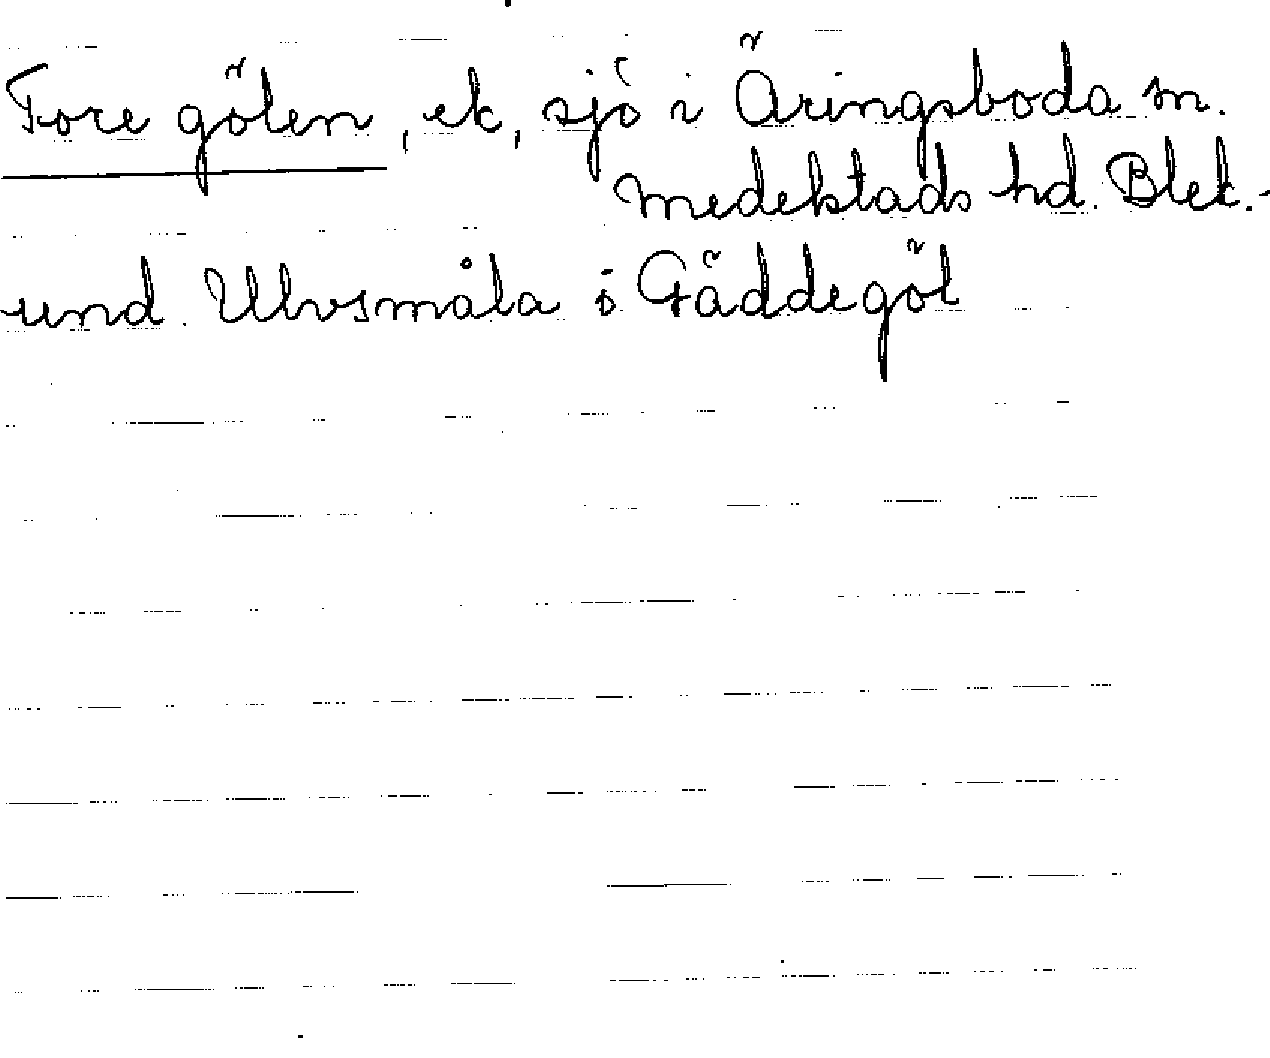 Fore gölen, ek, sjö i Äringsboda m.
Medelstads hd. Blek.-
und. Ulvsmåla ö Gäddegöl